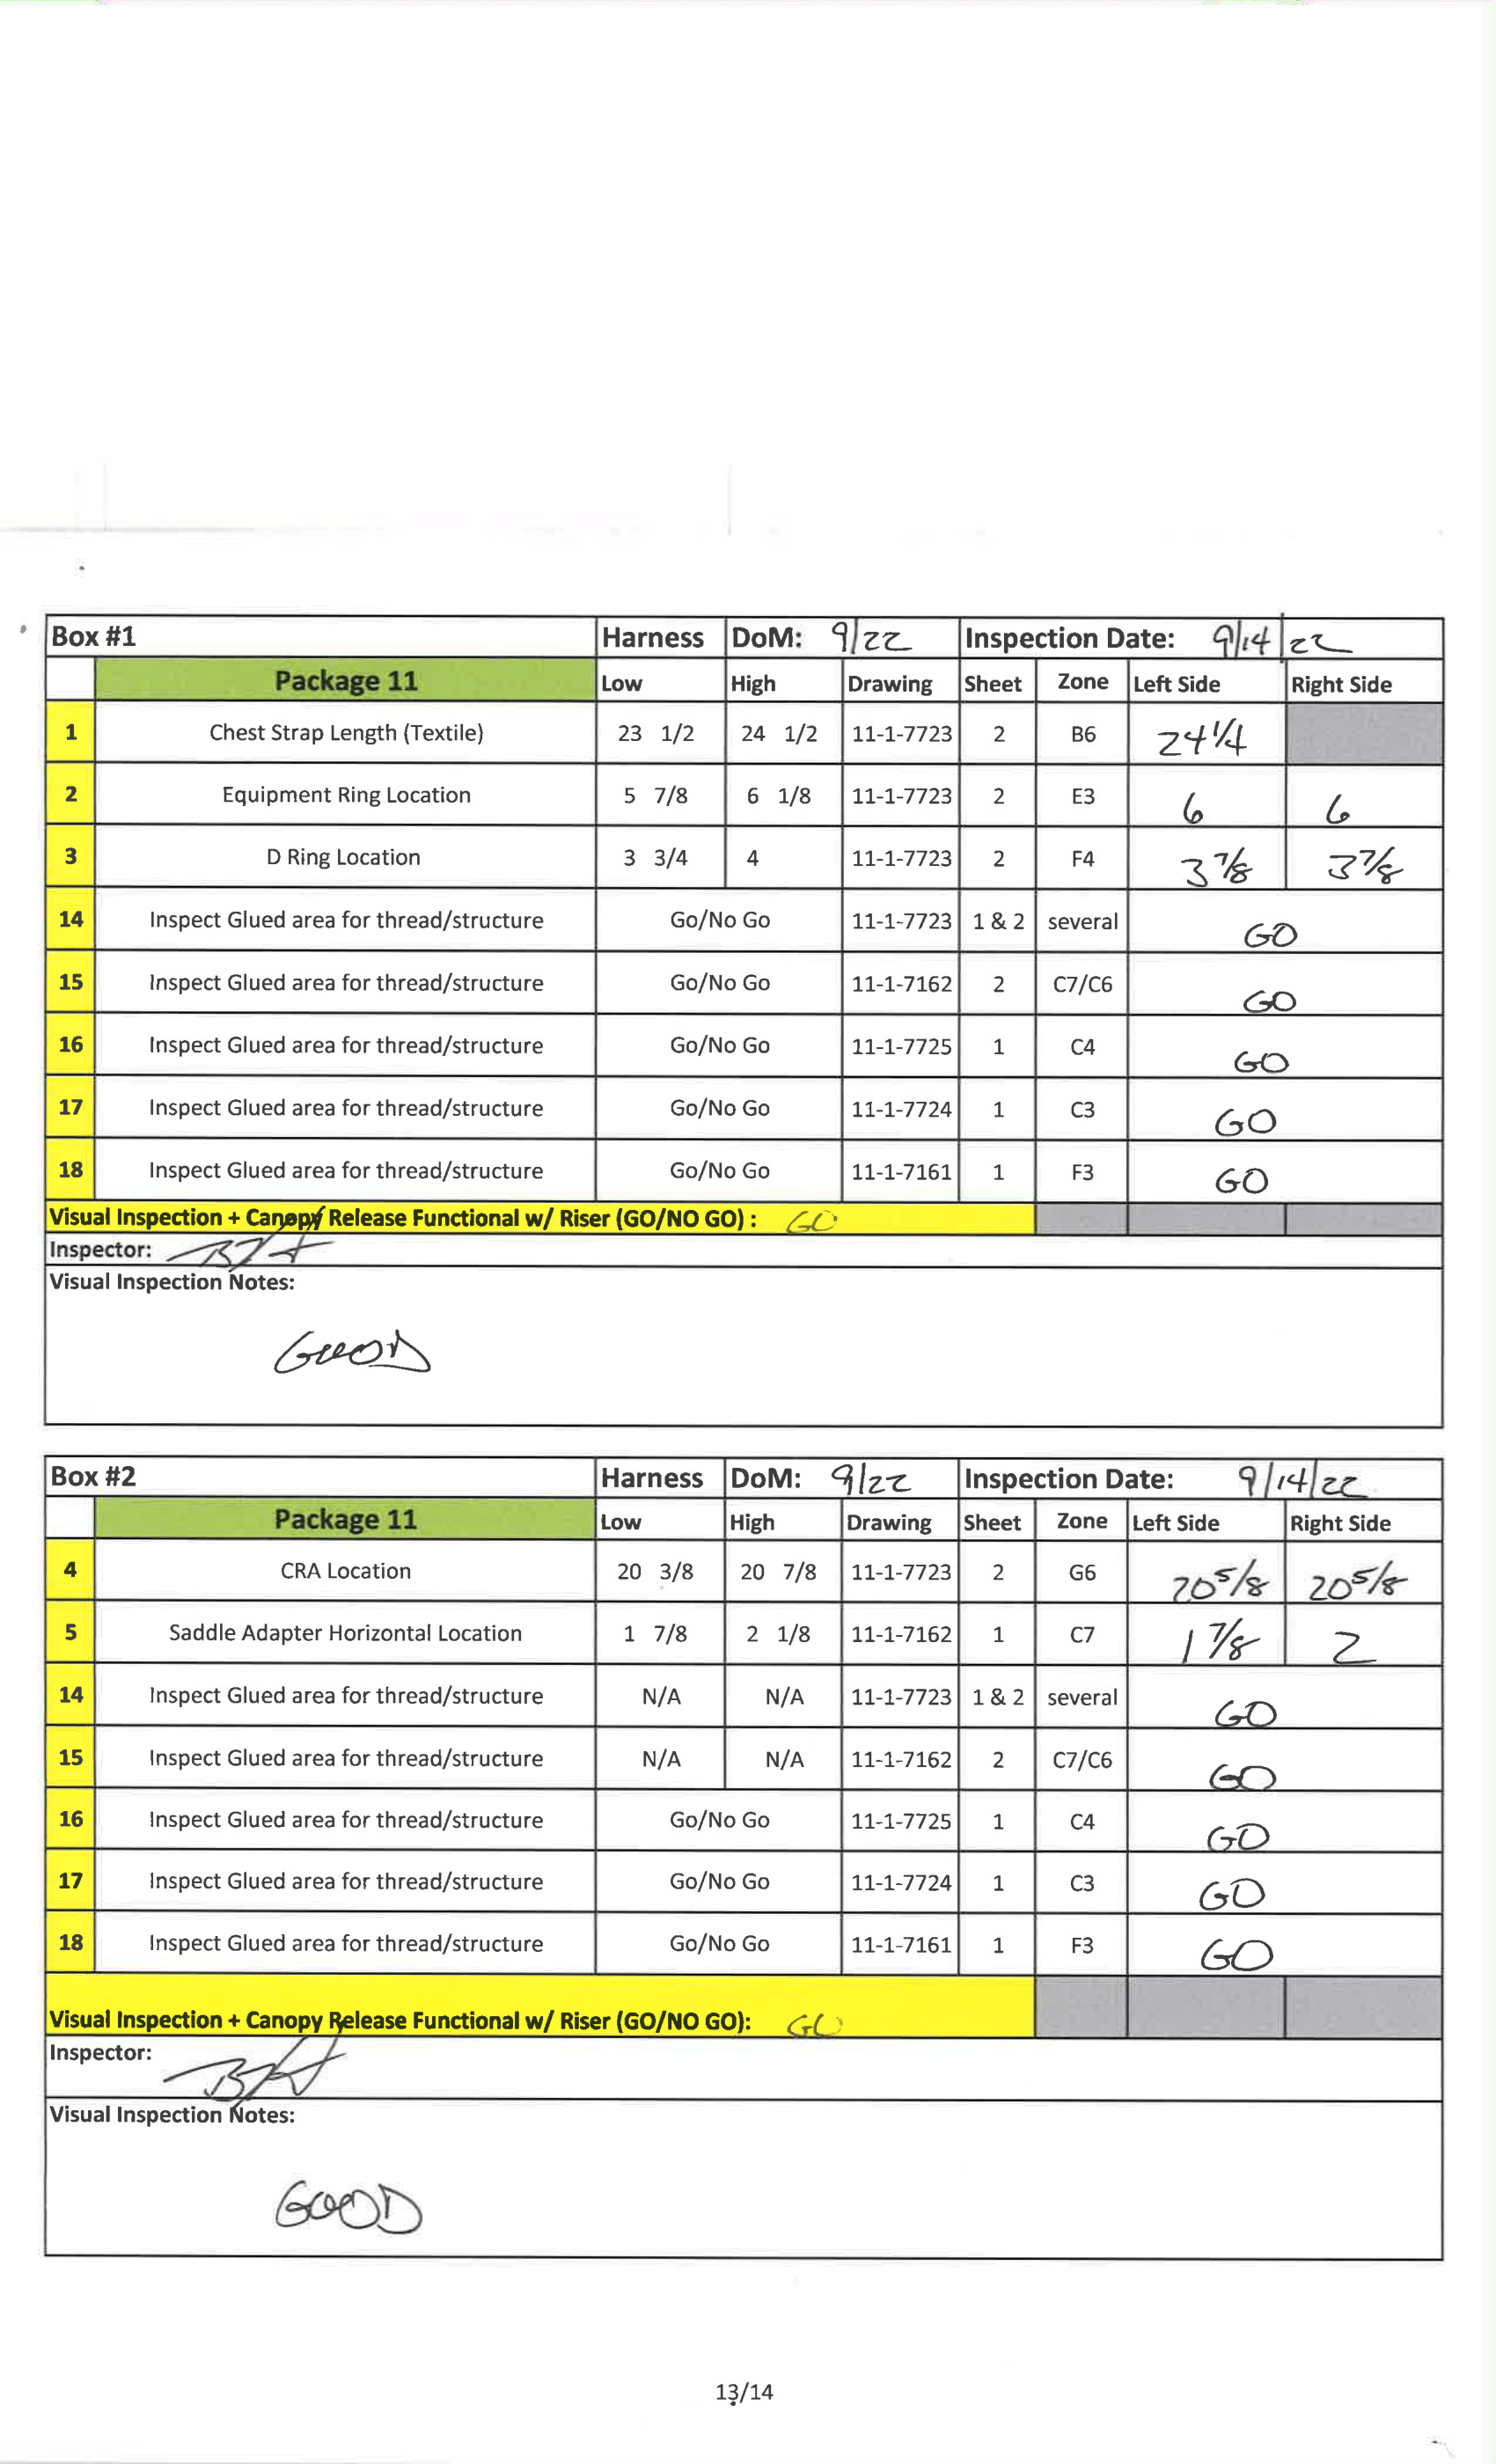 Box #1 Harness DoM: 9/22 Inspection Date: 9/14/22
Package 11 Low High Drawing Sheet Zone Left Side Right Side
1 Chest Strap Length (Textile) 23 1/2 24 1/2 11-1-7723 2 B6 24 1/4
2 Equipment Ring Location 5 7/8 6 1/8 11-1-7723 2 E3 6 6
3 D Ring Location 3 3/4 4 11-1-7723 2 F4 3 7/8 3 7/8
14 Inspect Glued area for thread/structure Go/No Go 11-1-7723 1 & 2 several GO
15 Inspect Glued area for thread/structure Go/No Go 11-1-7162 2 C7/C6 GO
16 Inspect Glued area for thread/structure Go/No Go 11-1-7725 1 C4 GO
17 Inspect Glued area for thread/structure Go/No Go 11-1-7724 1 C3 GO
18 Inspect Glued area for thread/structure Go/No Go 11-1-7161 1 F3 GO
Visual Inspection + Canopy Release Functional w/ Riser (GO/NO GO) : GO
Inspector:
Visual Inspection Notes:
GOOD
Box #2 Harness DoM: 9/22 Inspection Date: 9/14/22
Package 11 Low High Drawing Sheet Zone Left Side Right Side
4 CRA Location 20 3/8 20 7/8 11-1-7723 2 G6 20 5/8 20 5/8
5 Saddle Adapter Horizontal Location 1 7/8 2 1/8 11-1-7162 1 C7 1 7/8 2
14 Inspect Glued area for thread/structure N/A N/A 11-1-7723 1 & 2 several GO
15 Inspect Glued area for thread/structure N/A N/A 11-1-7162 2 C7/C6 GO
16 Inspect Glued area for thread/structure Go/No Go 11-1-7725 1 C4 GO
17 Inspect Glued area for thread/structure Go/No Go 11-1-7724 1 C3 GO
18 Inspect Glued area for thread/structure Go/No Go 11-1-7161 1 F3 GO
Visual Inspection + Canopy Release Functional w/ Riser (GO/NO GO): GO
Inspector:
Visual Inspection Notes:
GOOD
13/14